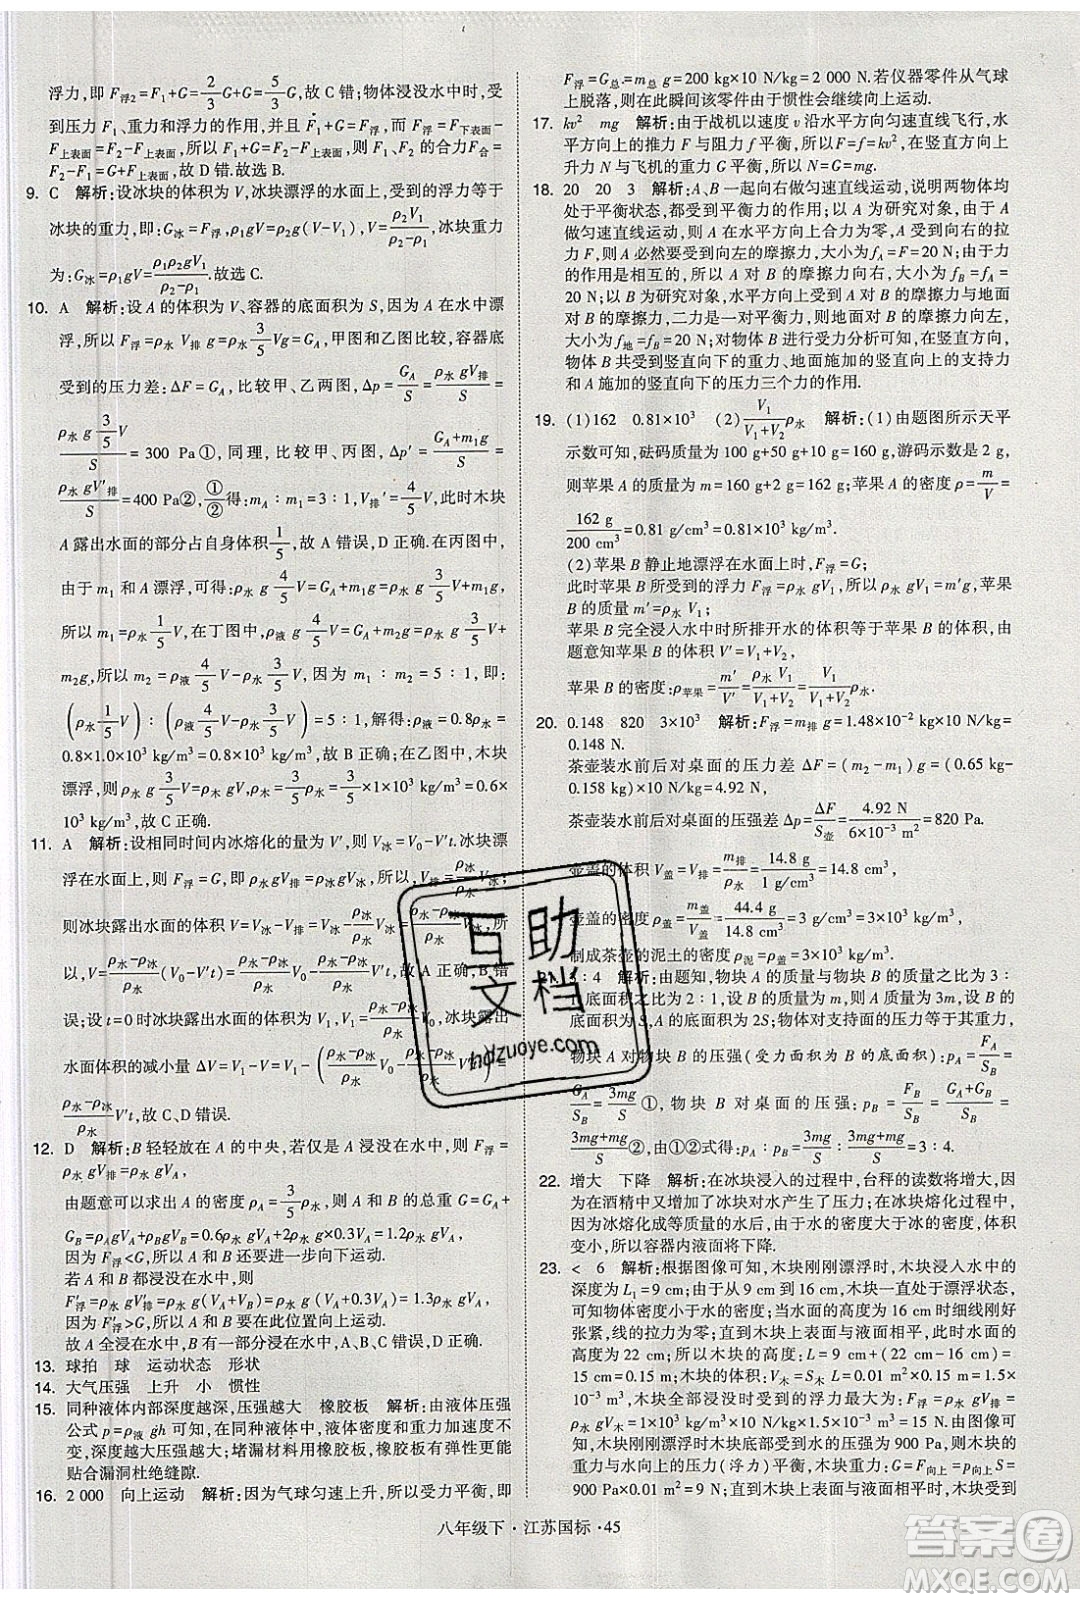 浮力,即 F浮2=F1+G=2/3G+G=5/3G,故 C 错;物体浸没水中时,受
到压力 F1、重力和浮力的作用,并且 F1+G=F浮,而 F浮=F下表面-
F上表面=F2-F上表面,所以 F1=F2-G-F上表面
F2-F1=G,故 D 错.故选 A.
9. C 解析:设冰块的体积为 V,冰块漂浮的水面上,受到的浮力等于
冰块的重力,即:G冰=F浮,ρ1gV=ρ2g(V-V1),V=ρ2V1/(ρ2-ρ1),冰块重力
为:G冰=ρ1gV=ρ1ρ2gV1/(ρ2-ρ1).故选 C.
10. A 解析:设 A 的体积为 V、容器的底面积为 S,因为 A 在水中漂
浮,所以 F浮=ρ水 V排 g=ρ水 3/5 Vg=GA,甲图和乙图比较,容器底
受到的压力差:ΔF=GA,比较甲、乙两图,Δp=GA/S=ρ水 gV排/S=
ρ水 g 3/5 V/S=300 Pa①,同理,比较乙、丙两图,Δp′=(GA+m1g)/S=
ρ水 gV′排/S=400 Pa②,①/②得:mA:m1=3:1,V排′=4/5V,此时木块
A 露出水面的部分占自身体积1/5,故 A 错误,D 正确.在丙图中,
由于 m1 和 A 漂浮,可得:ρ水 g 4/5 V=GA+m1g=ρ水 g 3/5 V+m1g,
所以 m1=ρ水 1/5 V,在丁图中,ρ液 g 4/5 V=GA+m2g=ρ水 g 3/5 V+
m2g,所以 m2=ρ液 4/5 V-ρ水 3/5 V,因为 m1:m2=5:1,即:
(ρ水 1/5 V):(ρ液 4/5 V-ρ水 3/5 V)=5:1,解得:ρ液=0.8ρ水=
0.8×1.0×10³ kg/m³=0.8×10³ kg/m³,故 B 正确;在乙图中,木块
漂浮,ρ水 g 3/5 V=ρ木 gV,所以 ρ木=3/5 ρ水=3/5×1×10³ kg/m³=0.6×
10³ kg/m³,故 C 正确.
11. A 解析:设相同时间内冰熔化的量为 V′,则 V冰=V0-V′t.冰块漂
浮在水面上,所以 F浮=G,即 ρ水 gV排=ρ冰 gV冰,所以 V排=ρ冰V冰/ρ水,
则冰块露出水面的体积 V=V冰-V排=V冰-ρ冰V冰/ρ水=(ρ水-ρ冰)/ρ水 V冰,所
以,V=(ρ水-ρ冰)/ρ水(V0-V′t)=(ρ水-ρ冰)/ρ水V0-(ρ水-ρ冰)/ρ水V′t,故 A 正确,B 错
误;设 t=0 时冰块露出水面的体积为 V1,V1=(ρ水-ρ冰)/ρ水V0,冰块露出
水面体积的减小量 ΔV=V1-V=V1-((ρ水-ρ冰)/ρ水V0-(ρ水-ρ冰)/ρ水V′t)=
(ρ水-ρ冰)/ρ水V′t,故 C、D 错误.
12. D 解析:B 轻轻放在 A 的中央,若仅是 A 浸没在水中,则 F浮=
ρ水 gV排=ρ水 gVA,
由题意可以求出 A 的密度 ρA=3/5ρ水,则 A 和 B 的总重 G=GA+
GB=ρAgVA+ρBgVB=ρ水 gVA×0.6+0.7ρ水 gVA=1.3ρ水 gVA,
因为 F浮<G,所以 A 和 B 还要进一步向下运动.
若 A 和 B 全部浸没在水中,则
F′浮=ρ水 gV排=ρ水 g(VA+VB)=
因为 F′浮>G,所以 A 和 B 在此位置向上运动.
故 A 全浸在水中,B 有一部分浸在水中,A、B、C 错误,D 正确.
13. 球拍 球 运动状态 形状
14. 大气压强 上升 小 惯性
15. 同种液体内部深度越深,压强越大 橡胶板 解析:由液体压强
公式 p=ρ液 gh 可知,在同种液体中,液体的密度和重力加速度不
变,深度越大压强越大;堵漏材料用橡胶板,橡胶板受力能更好的
贴合漏洞杜绝缝隙.
16. 2 000 向上运动 解析:因为气球匀速上升,所以受力平衡,即
F浮=G总=m总 g=200 kg×10 N/kg=2 000 N.若仪器零件从气球
上脱落,则在此瞬间该零件由于惯性会继续向上运动.
17. kv² mg 解析:由于战机以速度 v 沿水平方向匀速直线飞行,水
平方向上的推力 F 与阻力 f 平衡,所以推力 F=f=kv²,在竖直方向上
升力 N 与飞机的重力 G 平衡,所以 N=G=mg.
18. 20 20 3 解析:A、B 一起向右做匀速直线运动,说明两物体均
处于平衡状态,都受到平衡力的作用;以 A 为研究对象,由于 A
做匀速直线运动,在水平方向上合力为 0,受到向右的拉力
F,则 A 必然要受到 B 向左的摩擦力,大小为 fA=F=20 N;由于力
的作用是相互的,所以 A 对 B 的摩擦力向右,大小为 fB=fA=
20 N;以 B 为研究对象,水平方向上受到 A 的摩擦力与地面
对 B 的摩擦力,二力是一对平衡力,所以地面对 B 的摩擦力向左,大
小为 f地=fB=20 N;对物体 B 进行受力分析可知,在竖直方向,
物体 B 共受到竖直向下的重力、地面施加的竖直向上的支持力
和 A 施加的竖直向下的压力三个力的作用.
19. (1)162 0.81×10³ (2)V1/(V1+V2)ρ水 解析:(1)由题图所示天平
示数可知,砝码质量为 100 g+50 g+10 g=160 g,游码示数为 2 g,
则苹果 A 的质量为 m=160 g+2 g=162 g,苹果 A 的密度 ρ=m/V=
162 g/200 cm³=0.81 g/cm³=0.81×10³ kg/m³.
(2)苹果 B 静止地漂浮在水面上时,F浮=G;
此时苹果 B 所受到的浮力 F浮=ρ水 gV1,所以 ρ水 gV1=m′g,苹果
B 的质量 m′=ρ水 V1;
苹果 B 完全浸入水中时所排开水的体积等于苹果 B 的体积,由
题意知苹果 B 的体积 V′=V1+V2,
苹果 B 的密度:ρ苹果=m′/V′=ρ水 V1/(V1+V2)=V1/(V1+V2)ρ水.
20. 0.148 820 3×10³ 解析:F浮=m排 g=1.48×10⁻² kg×10 N/kg=
0.148 N.
茶壶装水前后对桌面的压力差 ΔF=(m2-m1)g=(0.65 kg-
0.158 kg)×10 N/kg=4.92 N,
茶壶装水前后对桌面的压强差 Δp=ΔF/S壶=4.92 N/(6×10⁻³ m²)=820 Pa.
壶盖的体积 V盖=V排=m排/ρ水=14.8 g/1 g/cm³=14.8 cm³,
壶盖的密度 ρ盖=m盖/V盖=44.4 g/14.8 cm³=3 g/cm³=3×10³ kg/m³,
制成茶壶的泥土的密度 ρ泥=ρ盖=3×10³ kg/m³.
:4 解析:由题知,物块 A 的质量与物块 B 的质量之比为 3:
1,底面积之比为 2:1,设 B 的质量为 m,则 A 的质量为 3m;设 B 的
底面积为 S,A 的底面积为 2S;物体对支持面的压力等于其重力,
物块 A 对物块 B 的压强(受力面积为 B 的底面积):pA=FA/SB=
GA/SB=3mg/S①,物块 B 对桌面的压强:pB=FB/SB=(GA+GB)/SB=
(3mg+mg)/S②,由①②式得:pA:pB=3mg/S:(3mg+mg)/S=3:4.
22. 增大 下降 解析:在冰块浸入的过程中,台秤的读数将增大,
因为在酒精中又增加了冰块对水产生了压力;在冰块熔化过程中,
因为冰熔化成等质量的水后,由于水的密度比冰的密度大,体积
变小,所以容器内液面将下降.
23. < 6 解析:根据图像可知,木块刚刚漂浮时,木块浸入水中的
深度为 L1=9 cm;由于从 9 cm 到 16 cm,木块一直处于漂浮状态,
可知物体密度小于水的密度;当水面的高度为 16 cm 时细线刚好
张紧,线的拉力为零;直到木块上表面与液面相平,此时水面的高
度为 22 cm,则木块的高度:L=9 cm+(22 cm-16 cm)=
15 cm;木块的体积:V木=10 cm×10 cm×15 cm=1.5×
10⁻³ m³,木块全部浸没时受到的浮力最大为:F浮=
ρ水 gV木=1×10³ kg/m³×10 N/kg×1.5×10⁻³ m³=15 N,
木块刚刚漂浮时木块底部受到水的压强为900 Pa,则木块的
重力与水的压力(浮力)平衡,所以木块重力 G=F向上=p向上S=
900 Pa×10 cm×10 cm×10⁻⁴=9 N,绳子的拉力最大为:F=
八年级下·江苏国标·45
互助
文档
hdzuoye.com
答案圈
MXQE.COM